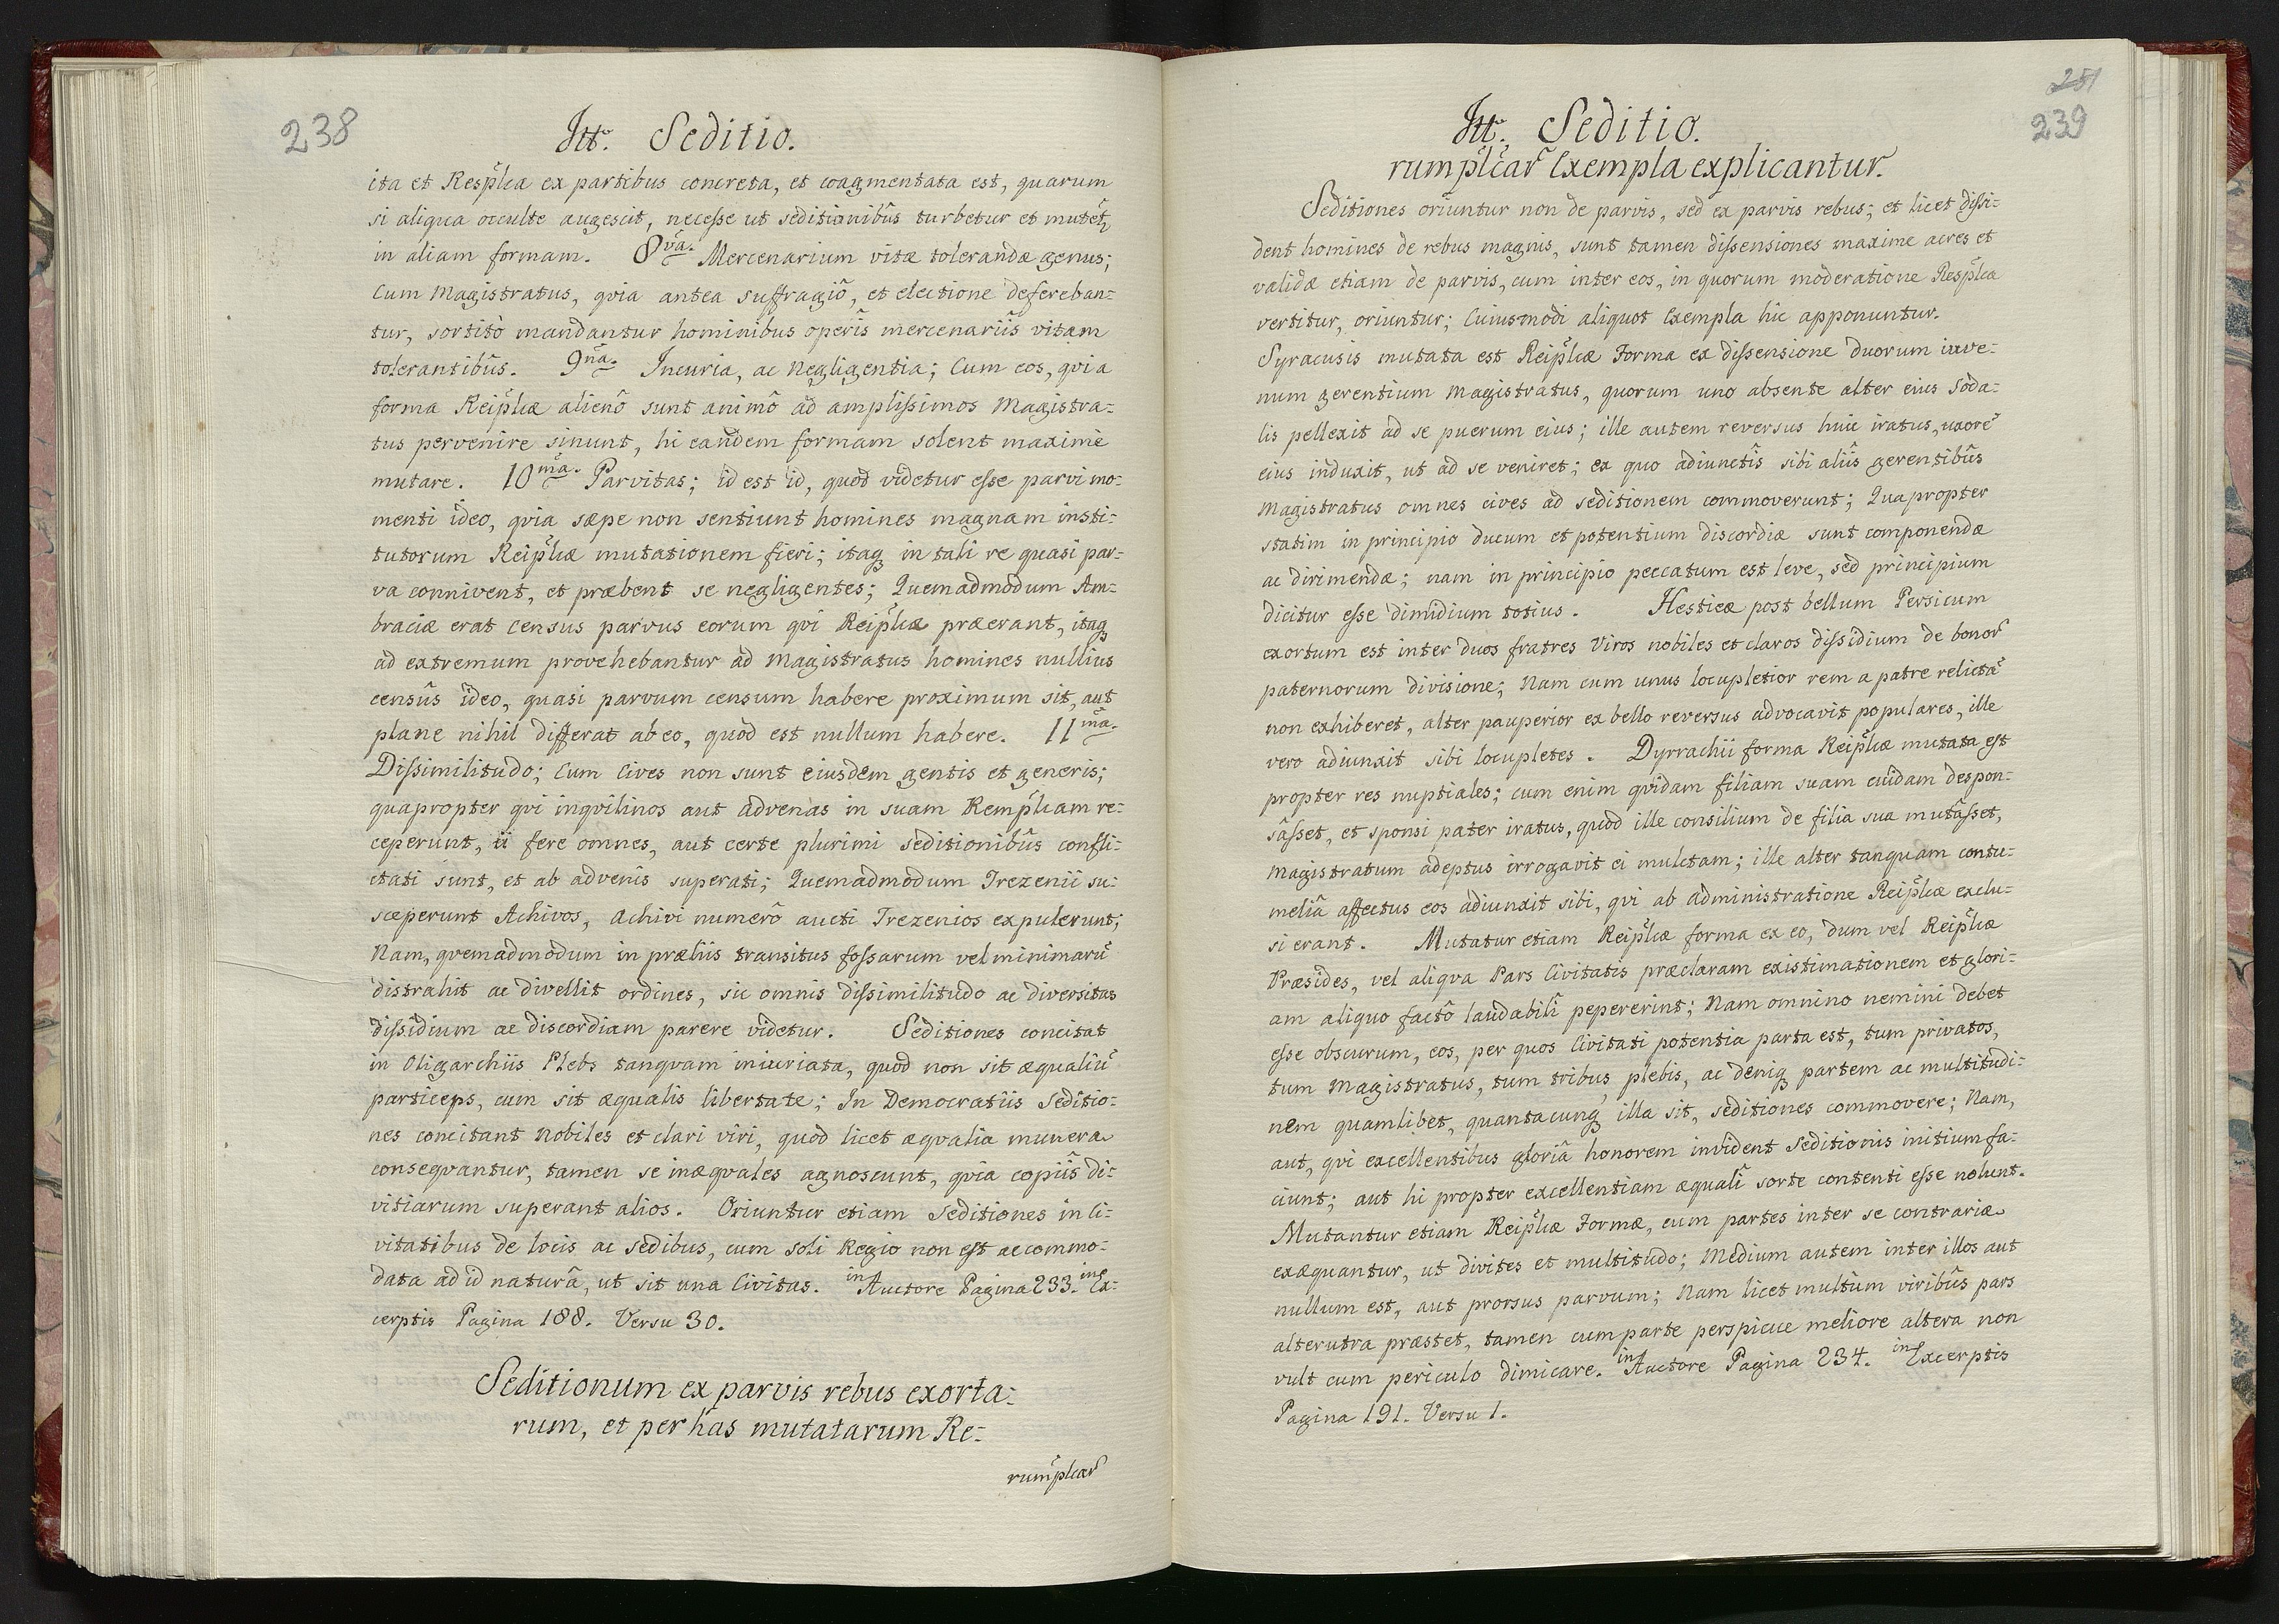 238
Itt. Seditio.
ita et Resp̃lica ex partibus concreta, et coagmentata est, quarum
si aliqua occulte augescit, necesse ut seditionibûs turbetur et mutet̃
in aliam formam. 8va. Mercenarium vitæ tolerandæ genus;
Cum Magistratus, qvia antea suffragiô, et electione defereban=
tur, sortitò mandantur hominibus operîs mercenariîs vitam
tolerantibûs. 9na. Incuria, ac Negligentia; Cum eos, qvi a
forma Reip̃licæ alienô sunt animô ad amplissimos Magistra=
tus pervenire sinunt, hi eandem formam solent maxime
mutare. 10ma. Parvitas; id est id, quod videtur esse parvi mo=
menti ideo, qvia sæpe non sentiunt homines magnam insti=
tutorum Reip̃licæ mutationem fieri; itaq in tali re quasi par=
va connivent, et præbent se negligentes; Quemadmodum Am=
braciæ erat census parvus eorum qvi Reip̃licæ præerant, itaq
ad extremum provehebantur ad Magistratus homines nullius
censûs ideo, quasi parvum censum habere proximum sit, aut
plane nihil differat ab eo, quod est nullum habere. 11ma.
Dissimilitudo; Cum Cives non sunt eiusdem gentis et generis;
quapropter qvi inqvilinos aut advenas in suam Remp̃licam re=
ceperunt, ii fere omnes, aut certe plurimi seditionibûs confli=
ctati sunt, et ab advenis superati; Quemadmodum Trezenii su=
sceperunt Achivos, Achivi numerô aucti Trezenios expulerunt;
Nam, qvemadmodum in præliis transitus fossarum vel minimarũ
distrahit ac divellit ordines, sic omnis dissimilitudo ac diversitas
dissidium ac discordiam parere videtur. Seditiones concitat
in Oligarchiis Plebs tanqvam iniuriata, quod non sit æqualiũ
particeps, cum sit æqualis libertate; In Democratiis Seditio=
nes concitant Nobiles et clari viri, quod licet æqvalia munera
conseqvantur, tamen se inæqvales agnoscunt, qvia copiîs di=
vitiarum superant alios. Oriuntur etiam Seditiones in Ci=
vitatibus de locis ac sedibus, cum soli Regio non est accommo=
data ad id naturâ, ut sit una Civitas. in Auctore Pagina 233. in Ex=
cerptis Pagina 188. Versu 30.
Seditionum ex parvis rebus exorta=
rum, et per has mutatarum Re=
rump̃licar̃
251
239
Itt. Seditio.
rump̃licar̃ Exempla explicantur.
Seditiones oriuntur non de parvis, sed ex parvis rebus; et licet dissi=
dent homines de rebus magnis, sunt tamen dissensiones maxime acres et
validæ etiam de parvis, cum inter eos, in quorum moderatione Resp̃lica
vertitur, oriuntur; Cuiusmodi aliquot Exempla hic apponuntur.
Syracusis mutata est Reip̃licæ Forma ex dissensione duorum iuve=
num gerentium Magistratus, quorum uno absente alter eius Soda=
lis pellexit ad se puerum eius; ille autem reversus huic iratus, uxorẽ
eius induxit, ut ad se veniret; ex quo adiunctîs sibi aliîs gerentibûs
Magistratus omnes cives ad seditionem commoverunt; Quapropter
statim in principio ducum et potentium discordiæ sunt componendæ
ac dirimendæ; nam in principio peccatum est leve, sed principium
dicitur esse dimidium totius. Hesticæ post bellum Persicum
exortum est inter duos fratres Viros nobiles et claros dissidium de bonor̃
paternorum divisione; Nam cum unus locupletior rem a patre relictã
non exhiberet, alter pauperior ex bello reversus advocavit populares, ille
vero adiunxit sibi locupletes. Dyrrachii forma Reip̃licæ mutata est
propter res nuptiales; cum enim qvidam filiam suam cuidam despon=
sâsset, et sponsi pater iratus, quod ille consilium de filia sua mutâsset,
Magistratum adeptus irrogavit ei mulctam; ille alter tanquam contu=
meliâ affectus eos adiunxit sibi, qvi ab administratione Reip̃licæ exclu=
si erant. Mutatur etiam Reip̃licæ forma ex eo, dum vel Reip̃licæ
Præsides, vel aliqva Pars Civitatis præclaram existimationem et glori=
am aliquo factô laudabilî pepererint; Nam omnino nemini debet
esse obscurum, eos, per quos Civitati potentia parta est, tum privatos,
tum Magistratus, tum tribus plebis, ac deniq partem ac multitudi=
nem quamlibet, quantacunq illa sit, seditiones commovere; Nam,
aut, qvi excellentibus gloriâ honorem invident Seditionis initium fa=
ciunt; aut hi propter excellentiam æqualî sorte contenti esse nolunt.
Mutantur etiam Reip̃licæ Formæ, cum partes inter se contrariæ
exæquantur, ut divites et multitudo; Medium autem inter illos aut
nullum est, aut prorsus parvum; Nam licet multùm viribûs pars
alterutra præstet, tamen cum parte perspicue meliore altera non
vult cum periculo dimicare. in Auctore Pagina 234. in Excerptis
Pagina 191. Versu 1.